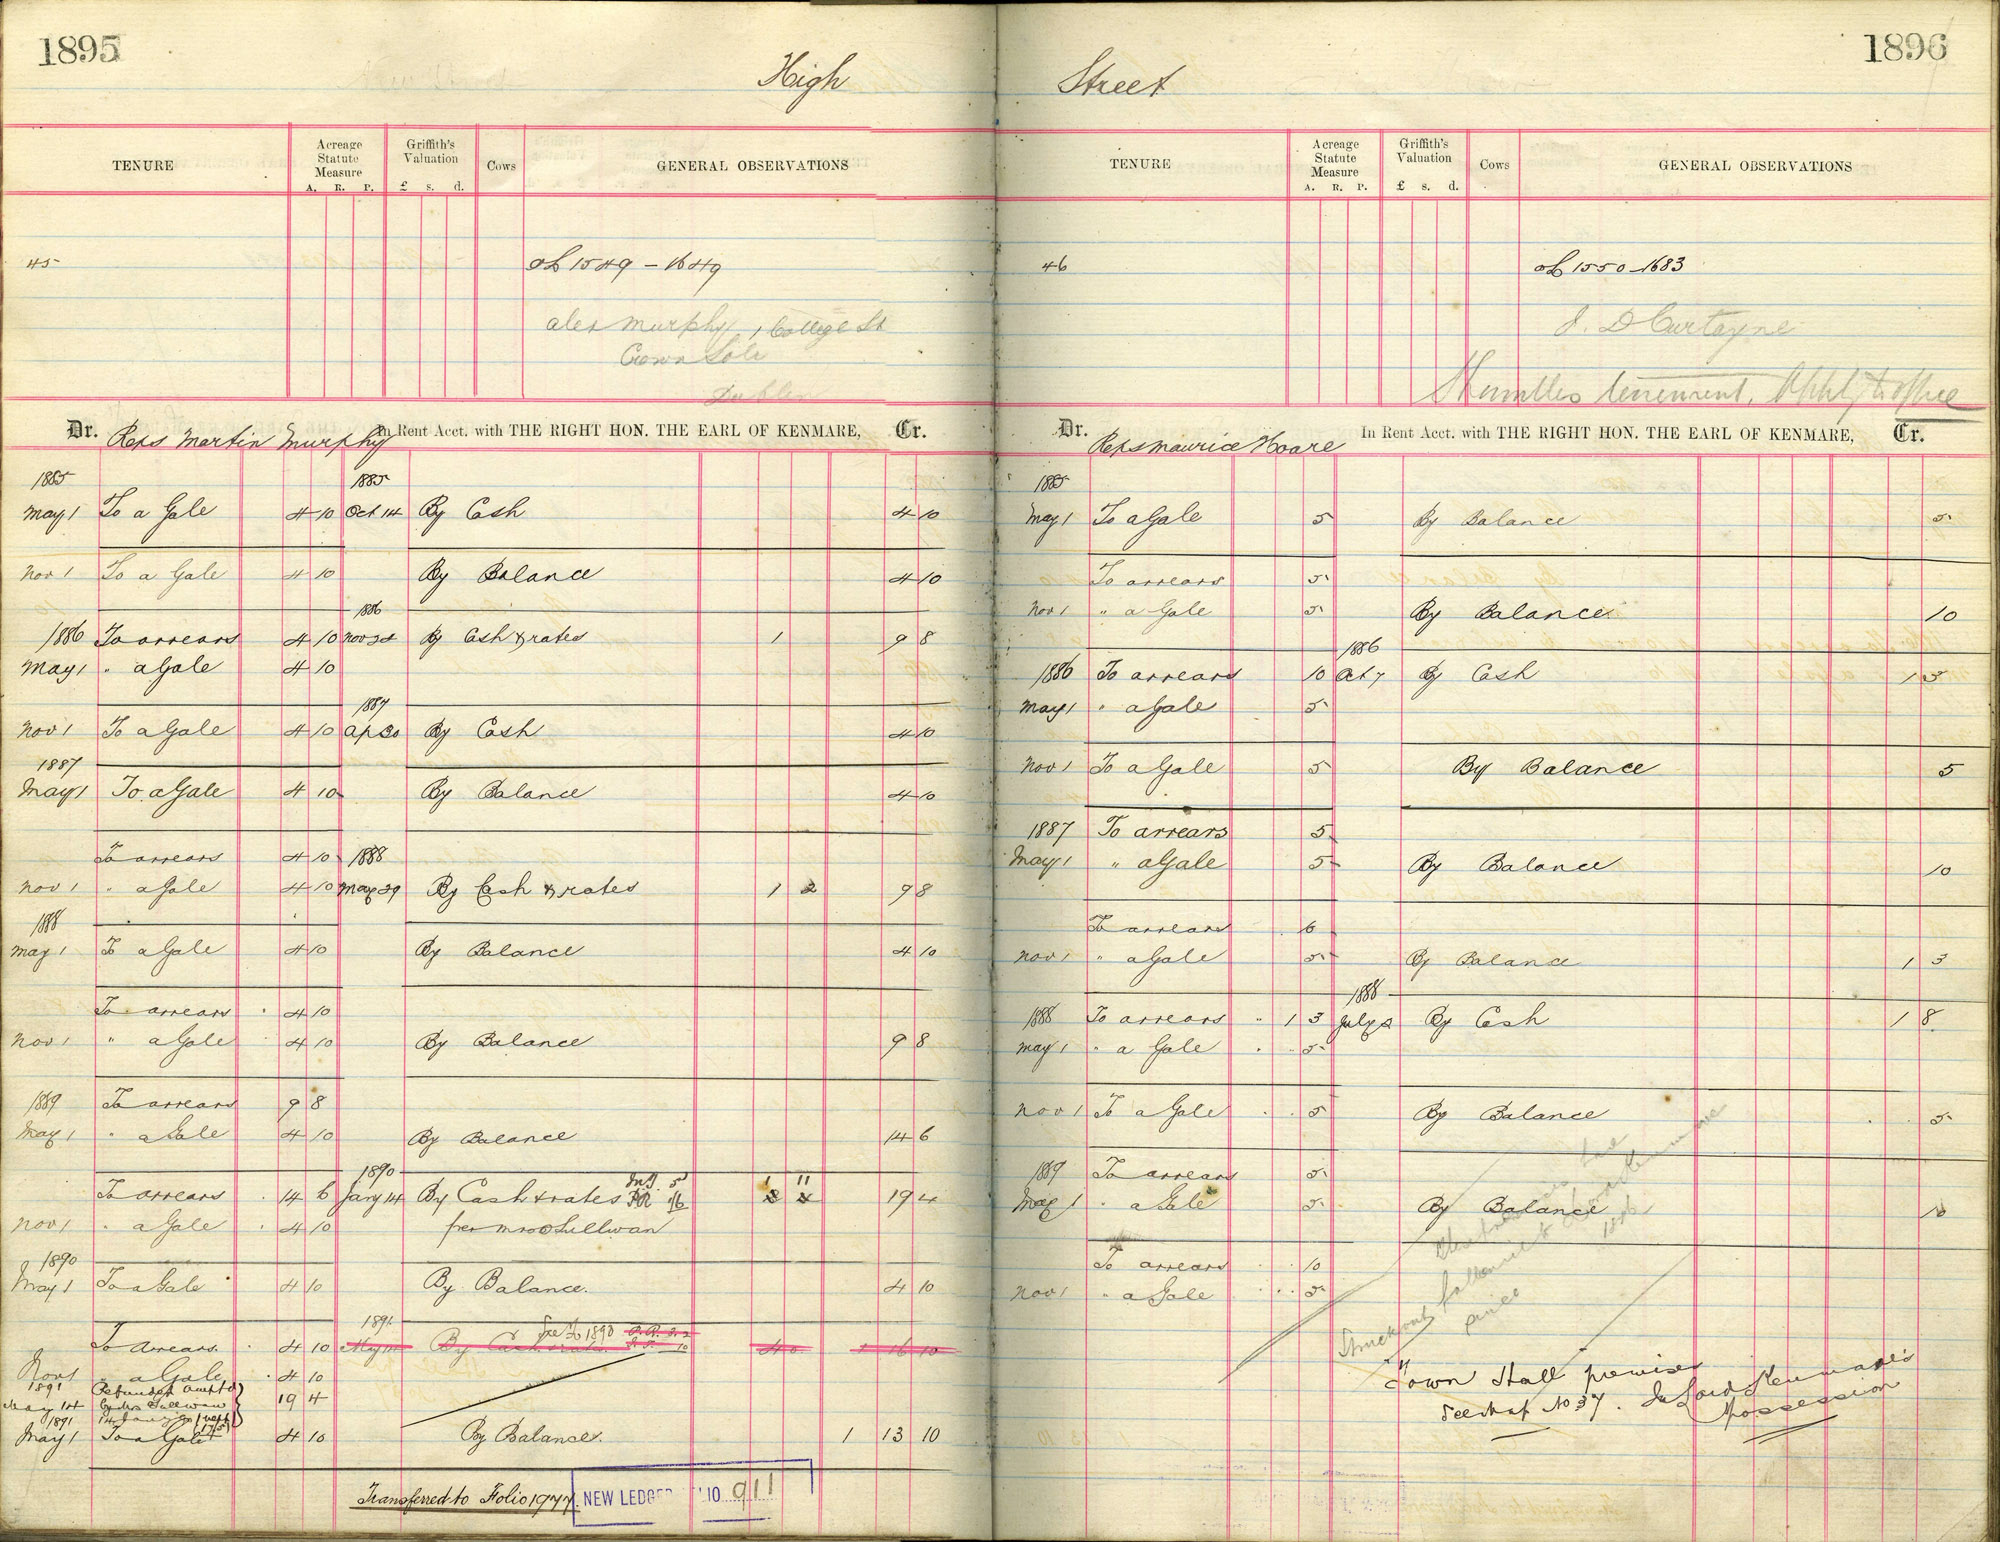 1895
High
TENURE Acreage Statute Measure A. R. P. Griffith's Valuation £ s. d. Cows GENERAL OBSERVATIONS
45 oL 1549 - 1649
Alex Murphy, 1 College St
Crown Sol
Dublin
Dr. Reps Martin Murphy In Rent Acct. with THE RIGHT HON. THE EARL OF KENMARE, Cr.
1885 1885
May 1 To a Gale 4 10 Oct 14 By Cash 4 10
Nov 1 To a Gale 4 10 By Balance 4 10
1886
1886 To arrears 4 10 Nov 24 By Cash & rates 1 9 8
May 1 " a Gale 4 10
1887
Nov 1 To a Gale 4 10 Ap 30 By Cash 4 10
1887
May 1 To a Gale 4 10 By Balance 4 10
To arrears 4 10 1888
Nov 1 " a Gale 4 10 May 29 By Cash & rates 1 2 9 8
1888
May 1 To a Gale 4 10 By Balance 4 10
To arrears 4 10
Nov 1 " a Gale 4 10 By Balance 9 8
1889 To arrears 9 8
May 1 " a Gale 4 10 By Balance 14 6
1890
To arrears 14 6 Jany 14 By Cash & rates 1 11 19 4
Nov 1 " a Gale 4 10 per Mrs O Sullivan
1890
May 1 To a Gale 4 10 By Balance. 4 10
1891 See Fo 1890
To arrears 4 10 May 14 By Cash & rates 4 0 1 16 10
Nov 1 " a Gale 4 10
1891 Refunded amt pd
May 14 by Mrs Sullivan 19 4
1891 14 Jany 90
May 1 To a Gale 4 10 By Balance. 1 13 10
Transferred to Folio 1977. NEW LEDGER FOLIO 911
1896
Street
TENURE Acreage Statute Measure A. R. P. Griffith's Valuation £ s. d. Cows GENERAL OBSERVATIONS
46 oL 1550-1683
J. D Curtayne
Shambles tenement. Apply to office
Dr. Reps Maurice Hoare In Rent Acct. with THE RIGHT HON. THE EARL OF KENMARE, Cr.
1885
May 1 To a Gale 5 By Balance 5
To arrears 5
Nov 1 " a Gale 5 By Balance 10
1886
1886 To arrears 10 Oct 7 By Cash 15
May 1 " a Gale 5
Nov 1 To a Gale 5 By Balance 5
1887 To arrears 5
May 1 " a Gale 5 By Balance 10
To arrears 6
Nov 1 " a Gale 5 By Balance 1 3
1888
1888 To arrears 1 3 July 2 By Cash 1 8
May 1 " a Gale 5
Nov 1 To a Gale 5 By Balance 5
1889 To arrears 5
May 1 " a Gale 5 By Balance 10
To arrears 10
Nov 1 " a Gale 5
Struck out
since 1886
"Town Hall premises
See Map No 37. In Lord Kenmare's
Possession